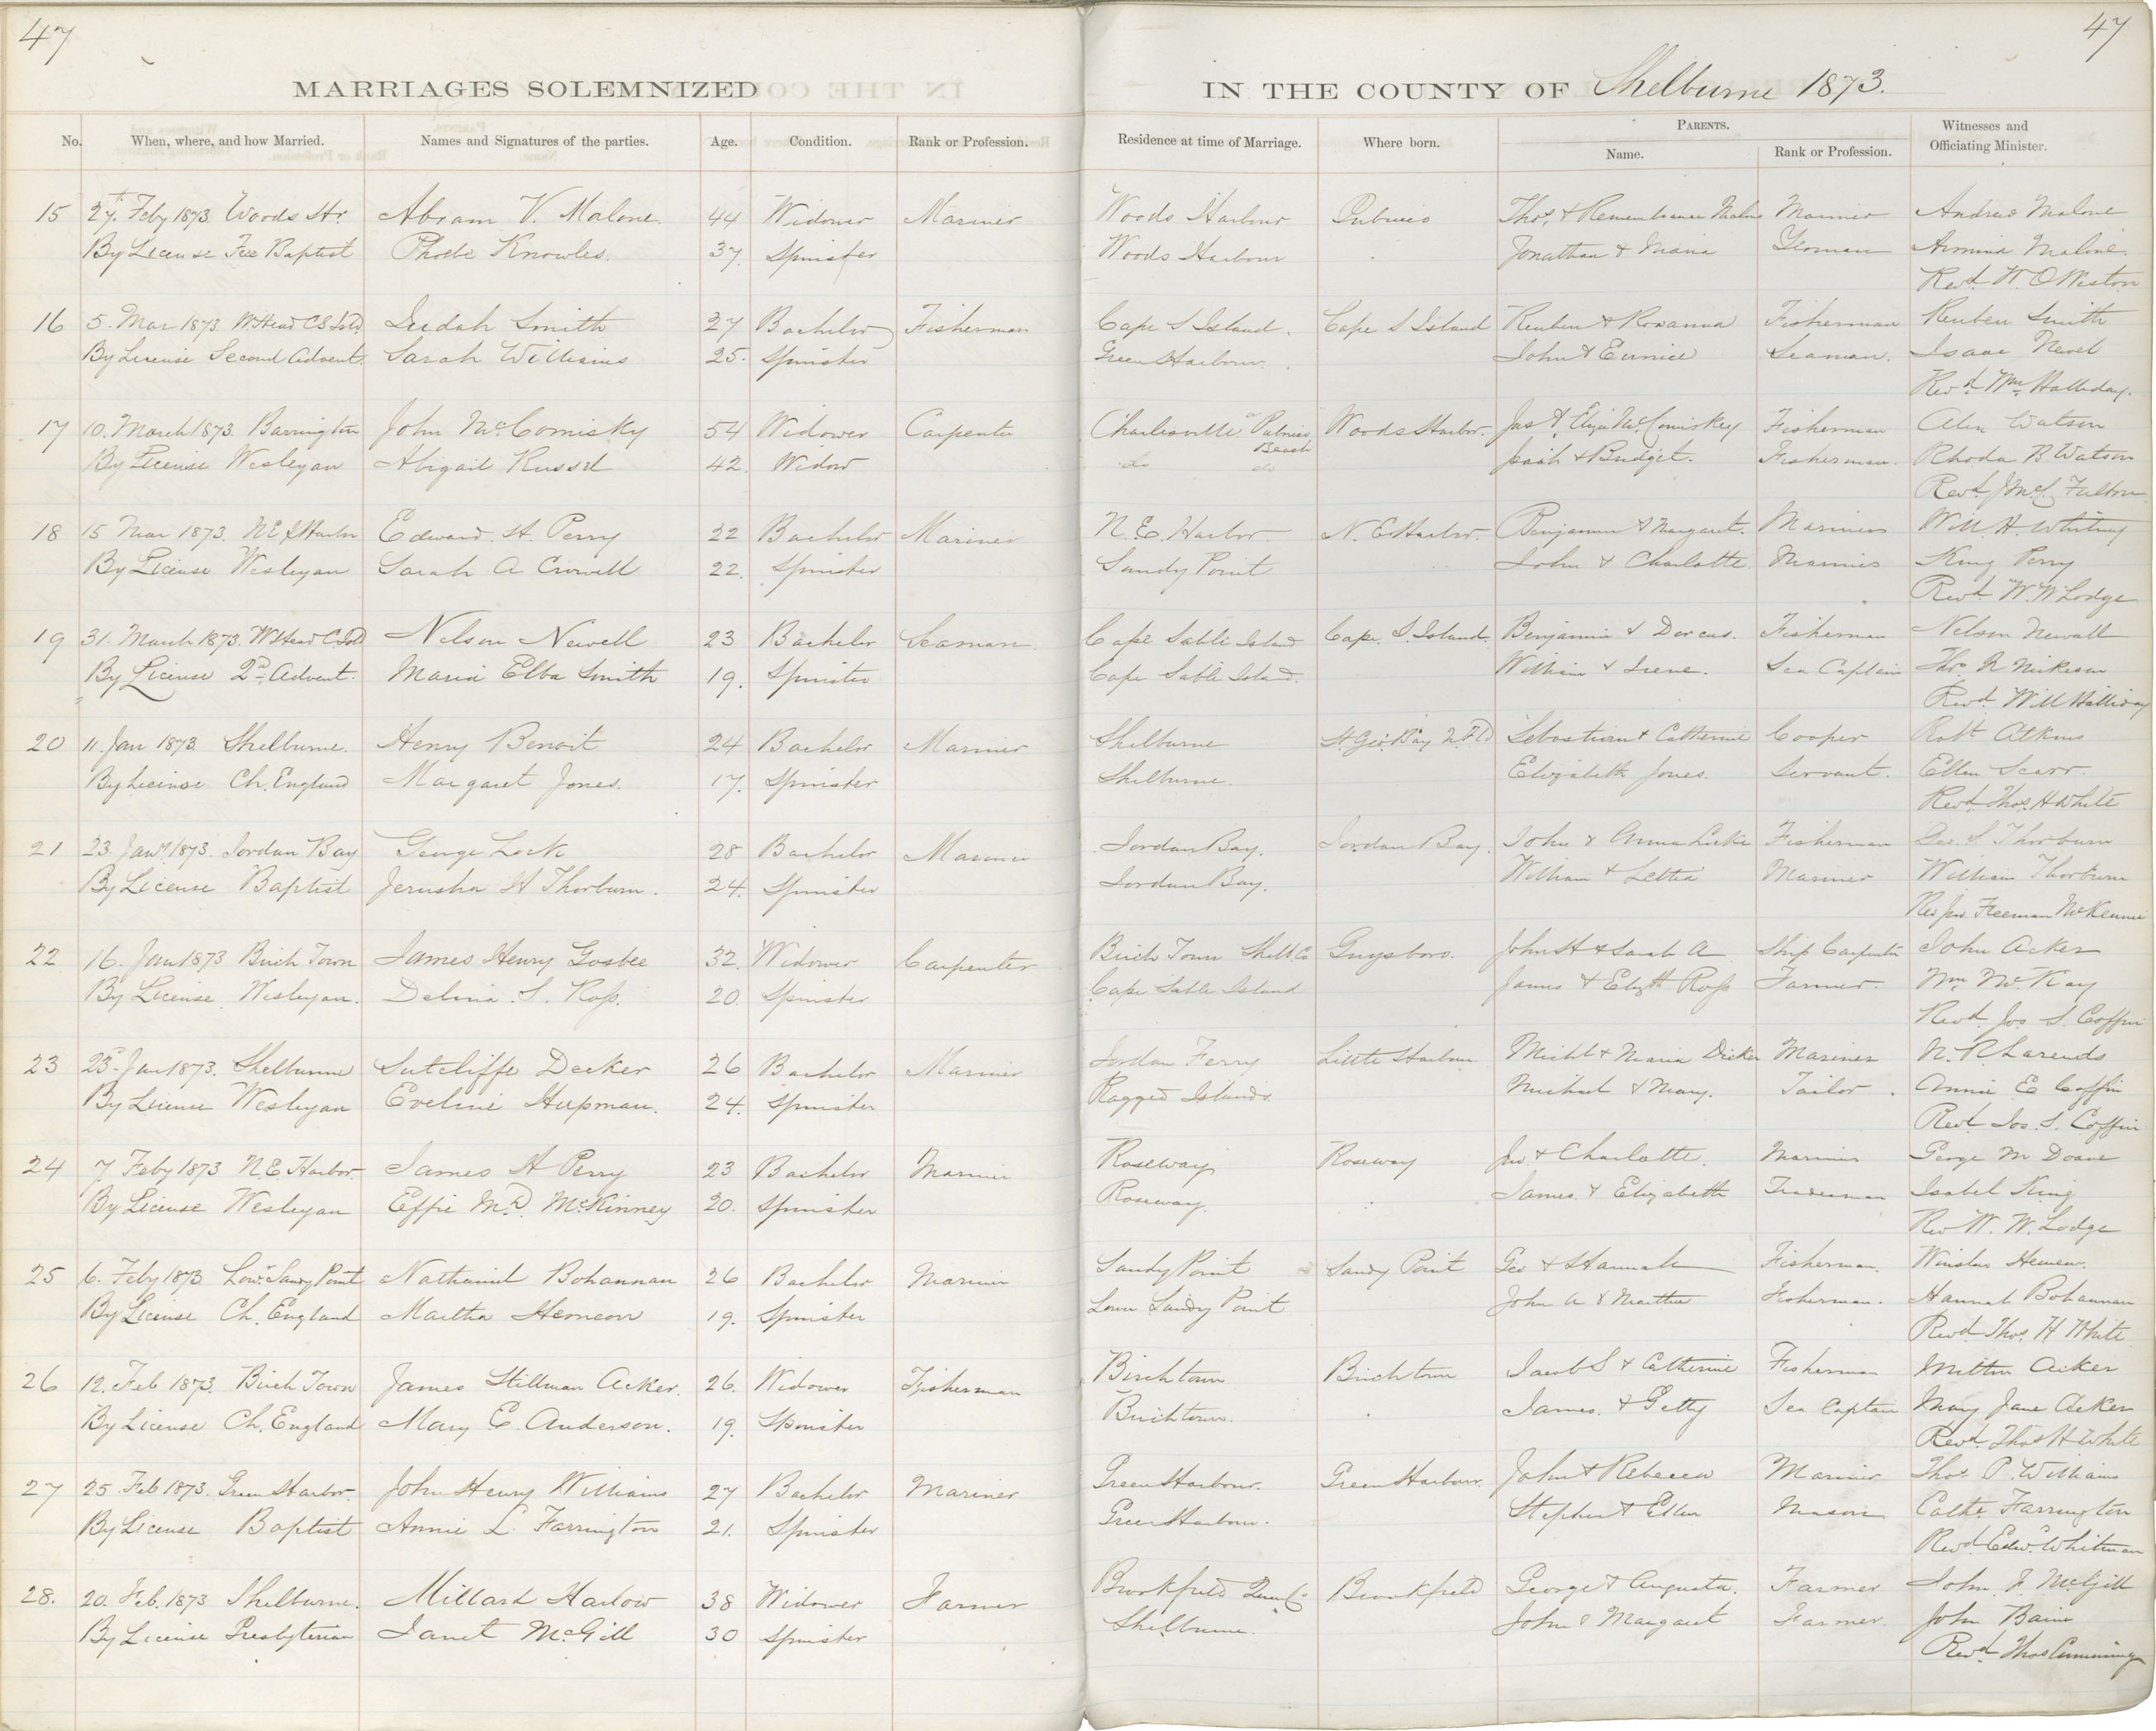 47
47
MARRIAGES SOLEMNIZED IN THE COUNTY OF Shelburne 1873.
No. When, where, and how Married. Names and Signatures of the parties. Age. Condition. Rank or Profession. Residence at time of Marriage. Where born. PARENTS. Witnesses and Officiating Minister.
Name. Rank or Profession.
15 27th Feby 1873 Woods Hr. Abram V. Malone. 44 Widower Mariner Woods Harbour Pubnico Thos. & Remembrance Malone Mariner Andrew Malone
By License Free Baptist Phoebe Knowles. 37. Spinster Woods Harbour Jonathan & Maria Yeoman Malone.
Revd. W. O Weston
16 5. Mar 1873 W Head C S Isld Judah Smith 27 Bachelor Fisherman Cape S Island. Cape S Island Reuben & Roxanna Fisherman Reuben Smith
By License Second Advent. Sarah Williams 25. Spinster Green Harbour. John & Eunice Seaman. Isaac
Revd Wm. Halliday.
17 10. March 1873. Barrington John McComisky 54 Widower Carpenter Charlesville Pubnico Beach Woods Harbor. Jas & Eliza McComiskey Fisherman Alex Watson
By License Wesleyan Abigail Russel 42. Widow do do & Bridget. Fisherman. Rhoda B. Watson
Revd. Fulton
18 15 Mar 1873. N E Harbor Edward. H. Perry 22 Bachelor Mariner N. E. Harbor. N. E Harbor. Benjamin & Margaret. Mariner Will. H. Whitney
By License Wesleyan Sarah A Crowell 22. Spinster Sandy Point John & Charlotte. Mariner King Perry
Revd. W. W Lodge
19 31. March 1873. W Head C. Isld Nelson Newell 23 Bachelor Seaman Cape Sable Island Cape. S. Island. Benjamin & Dorcas. Fisherman Nelson Newell
By License 2nd Advent. Maria Elba Smith 19. Spinster Cape Sable Island. William & Irene. Sea Captain Thos. N Nickerson
Revd. Will Halliday
20 11. Jan 1873. Shelburne. Henry Benoit 24 Bachelor Mariner Shelburne St Geo. Bay N.F.Ld Sebastian & Catherine Cooper Robt. Atkins
By License Ch. England Margaret Jones. 17. Spinster Shelburne. Elizabeth Jones. Servant. Ellen Scarr.
Revd. Thos. H White
21 23. Jany 1873. Jordan Bay George Lock 28 Bachelor Mariner Jordan Bay. Jordan Bay. John & Anna Locke Fisherman Geo. S. Thorburn
By License Baptist Jerusha H Thorburn. 24. Spinster Jordan Bay. William & Lettia Mariner William Thorburn
Rev Jno. Freeman McKennie
22 16. Jan 1873 Birch Town James Henry Gosbee 32. Widower Carpenter Birch Town Shelb. Co Guysboro. John H & Sarah A Ship Carpenter John Acker
By License Wesleyan. Delina. S. Ross. 20. Spinster Cape Sable Island James & Elizth Ross Farmer. Wm McKay
Revd. Jos S. Coffin
23 23d. Jan 1873. Shelburne Sutcliffe Decker 26 Bachelor Mariner Jordan Ferry Little Harbour Michl & Maria Decker Mariner N. R.
By License Wesleyan Eveline Hupman. 24. Spinster Ragged Islands Michael & Mary. Tailor. Annie E Coffin
Revd. Jos. S. Coffin
24 7 Feby 1873 N.E. Harbor. James H Perry 23 Bachelor Mariner Roseway Roseway Jno. & Charlotte. Mariner George M Doane
By License Wesleyan Effie McD. McKinney 20. Spinster Roseway. James & Elizabeth Isabel King
Rev W. W. Lodge
25 6. Feby 1873. Lowr. Sandy Point Nathaniel Bohannan 26 Bachelor Mariner Sandy Point Sandy Point Geo & Hannah Fisherman. Winslow Hemeon.
By License Ch. England Martha Hemeon 19. Spinster Lower Sandy Point John A & Martha Fisherman. Hannah Bohannan
Revd. Thos. H White
26 12. Feb 1873. Birch Town James Stillman Acker. 26. Widower Fisherman Birchtown Birchtown Jacob S & Catherine Fisherman Milton Acker
By License Ch. England Mary E. Anderson. 19. Spinster Birchtown. James. & Getty Sea Captain Mary Jane Acker
Revd. Thos H White
27 25. Feb 1873. Green Harbor. John Henry Williams 27 Bachelor Mariner Green Harbour. Green Harbour. John & Rebecca Mariner Thos. P. Williams
By License Baptist Annie L. Farrington 21. Spinster Green Harbour. Stephen & Ellen Mason Cathe. Farrington
Revd. Edw. Whitman
28. 20. Feb. 1873 Shelburne. Millard Harlow 38 Widower Farmer Brookfield Queens Co. Brookfield George & Augusta. Farmer John F. McGill
By License Presbyterian Janet McGill 30 Spinster Shelburne. John & Margaret Farmer. John Bain
Revd. Thos Cumming